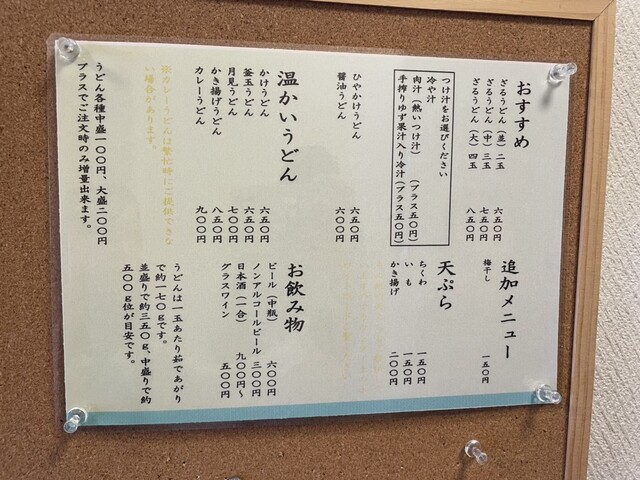 おすすめ
ざるうどん（並）二玉 六五〇円
ざるうどん（中）三玉 七五〇円
ざるうどん（大）四玉 八五〇円
つけ汁をお選びください
冷や汁
肉汁（熱いつけ汁）（プラス五〇円）
手搾りゆず果汁入り冷汁（プラス五〇円）
ひやかけうどん 六五〇円
醤油うどん 六〇〇円
温かいうどん
かけうどん 六五〇円
釜玉うどん 六五〇円
月見うどん 七〇〇円
かき揚げうどん 八五〇円
カレーうどん 九〇〇円
※カレーうどんは繁忙時にご提供できな
い場合があります。
うどん各種中盛一〇〇円、大盛二〇〇円
プラスでご注文時のみ増量出来ます。
追加メニュー
梅干し 一五〇円
天ぷら
ちくわ 一五〇円
いも 一五〇円
かき揚げ 二〇〇円
お飲み物
ビール（中瓶） 六〇〇円
ノンアルコールビール 三〇〇円
日本酒（一合） 九〇〇円～
グラスワイン 五〇〇円
うどんは一玉あたり茹であがり
で約一七〇gです。
並盛りで約三五〇g、中盛りで約
五〇〇g位が目安です。